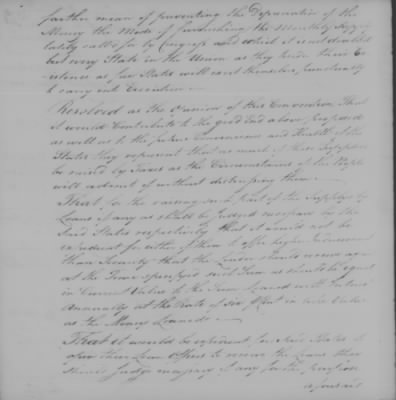 farther mean of preventing the Depreciation of the
Money the Mode of furnishing the Monthly Supply
lately call'd for by Congress and which it is not doubted
but every State in the Union as they prize their Ex
istence as free States will exert themselves punctually
to carry into Execution
Resolved as the Opinion of this Convention That
it would Contribute to the good End above proposed
as well as to the future Convenience and Health of the
States they represent that as much of these Supplies
be raised by Taxes as the Circumstances of the People
will admit of without distressing them
That for the raising such part of the Supplies by
Loans if any as shall be judged necessary by the
said States respectively that it would not be
expedient for either of them to offer higher Inducement
than Security that the Lender should receive again
at the Time specified such Sum as should be equal
in Current Value to the Sum loaned with Interest
Annually at the Rate of six Cent in like Value
as the Money Loaned
That it would be expedient for said States to
open their Loan Offices to receive the Loans they
should judge necessary if any for the purpose
aforesaid